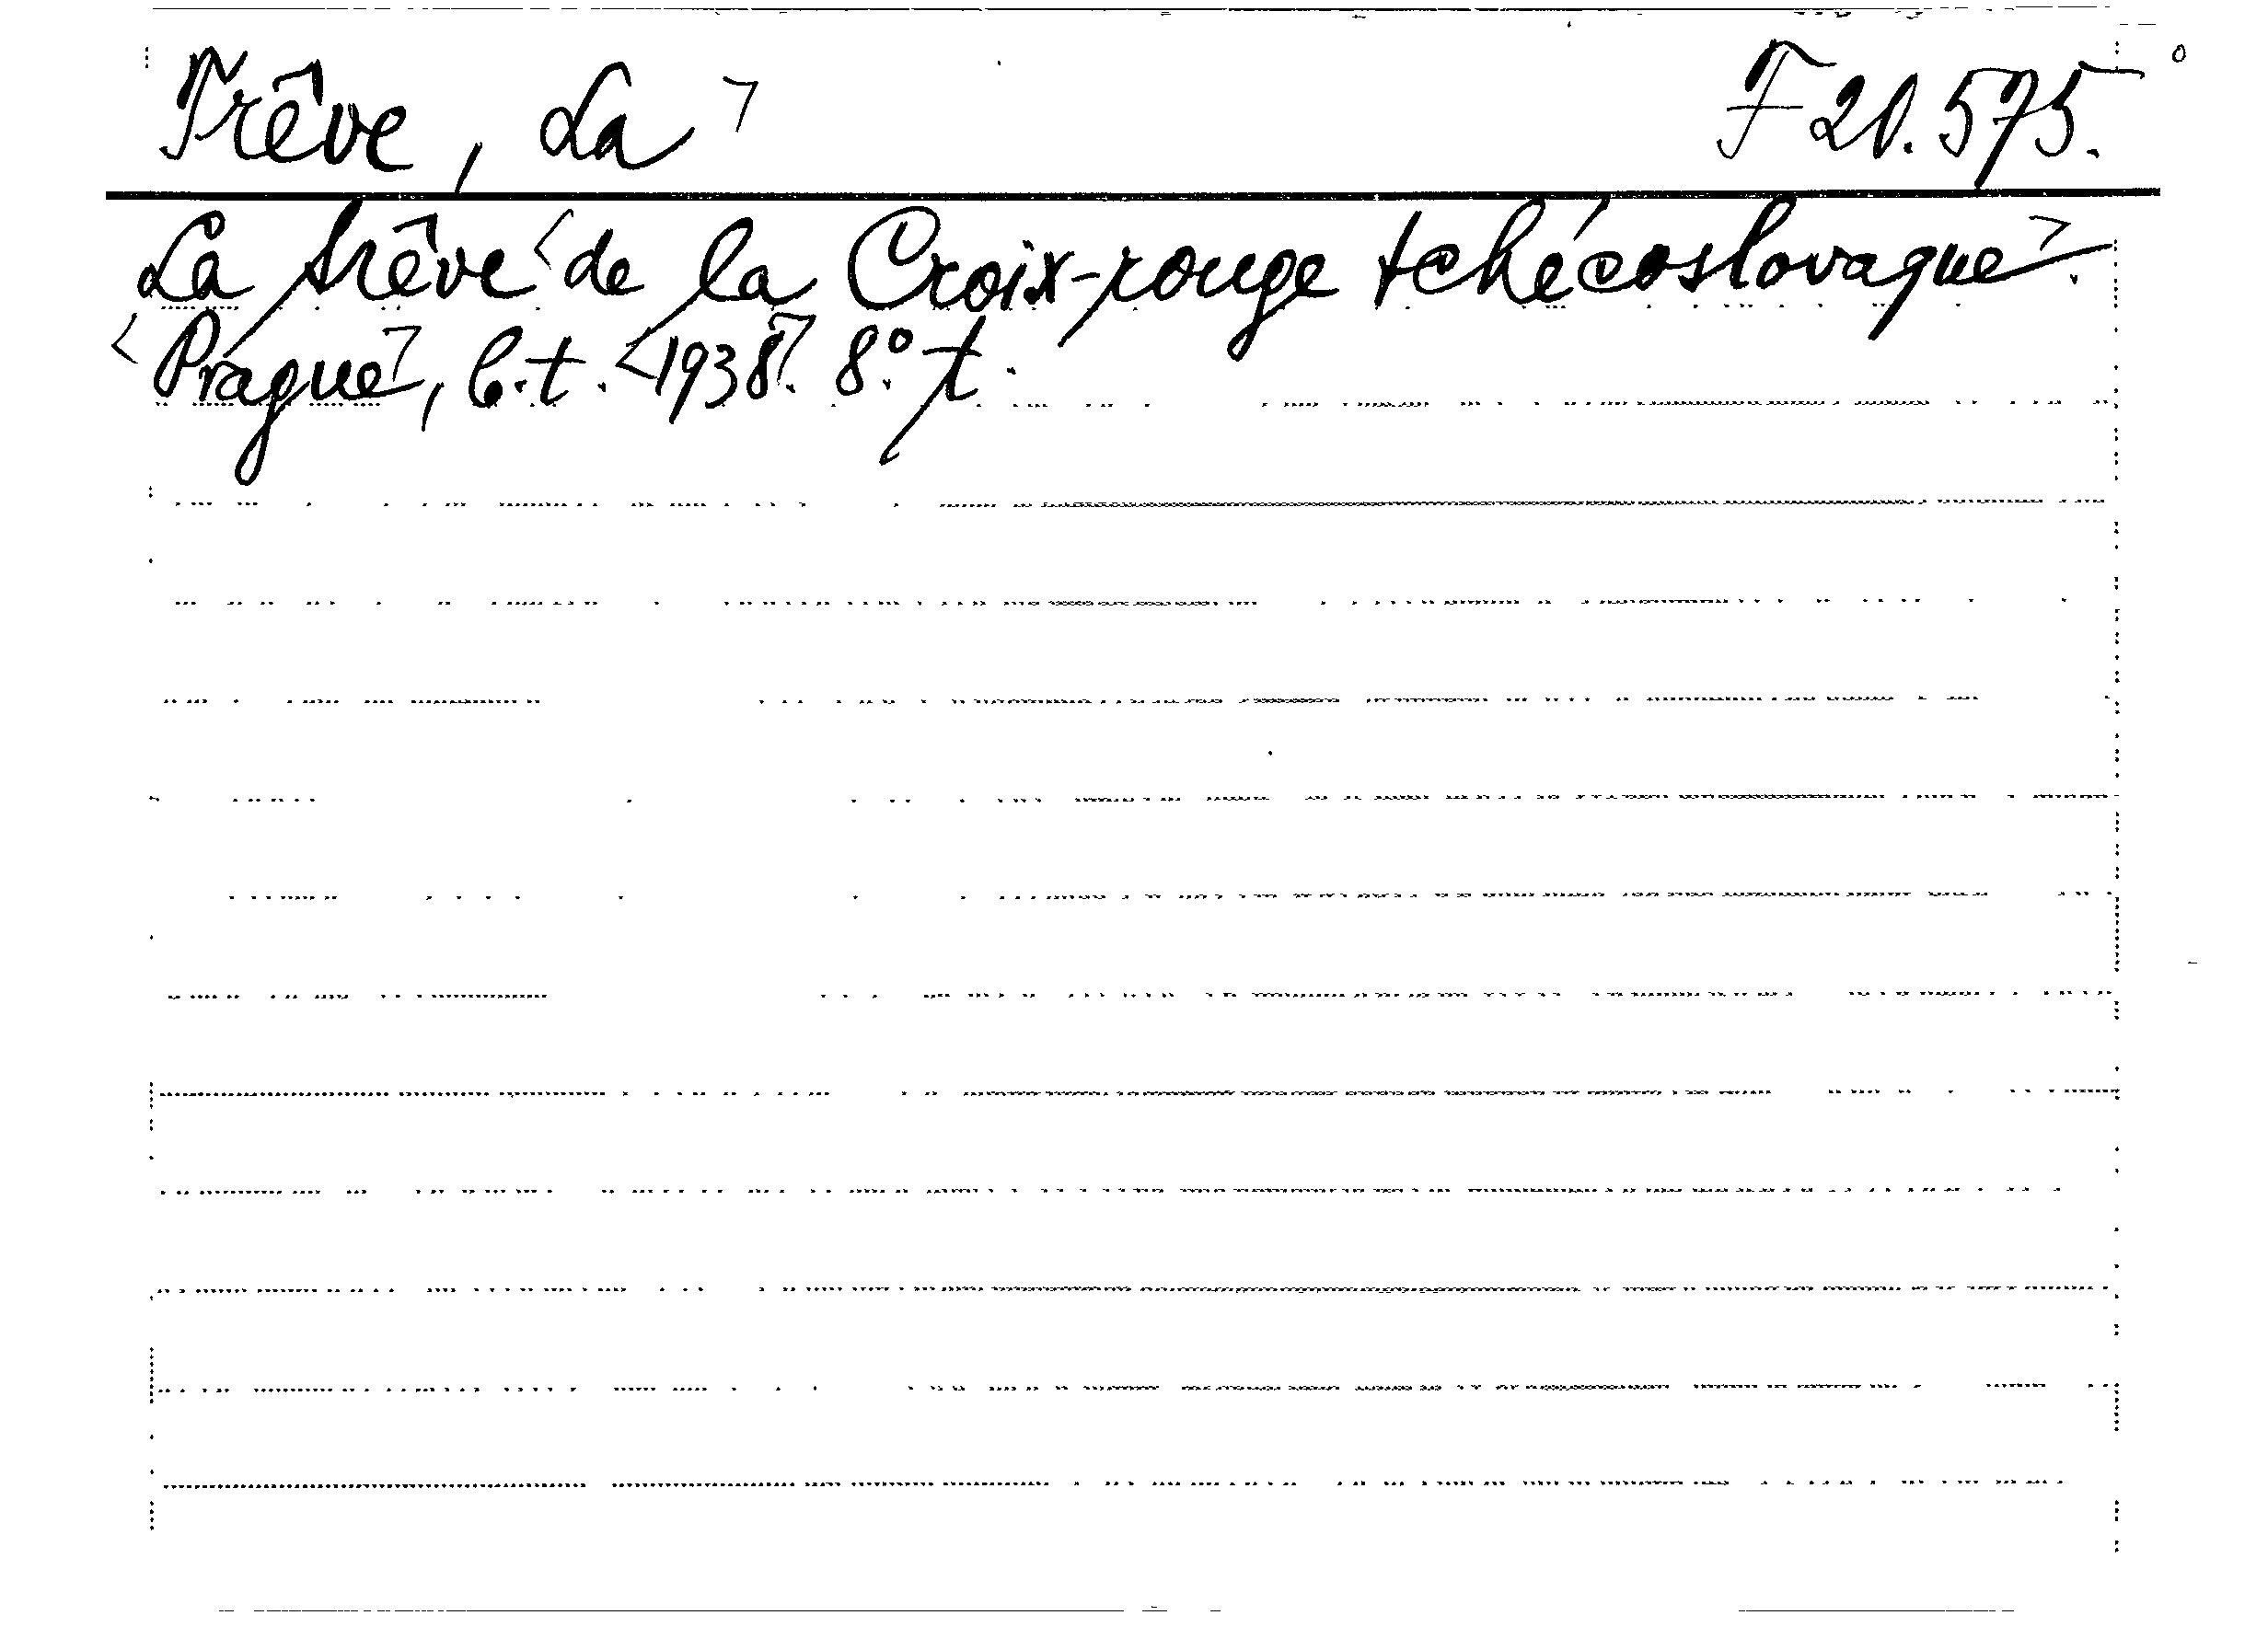 Trêve, La ⌝ F 20.575.
La trêve <de la Croix-rouge tchécoslovaque⌝.
<Prague⌝, b.t. <1938⌝. 8.° t.